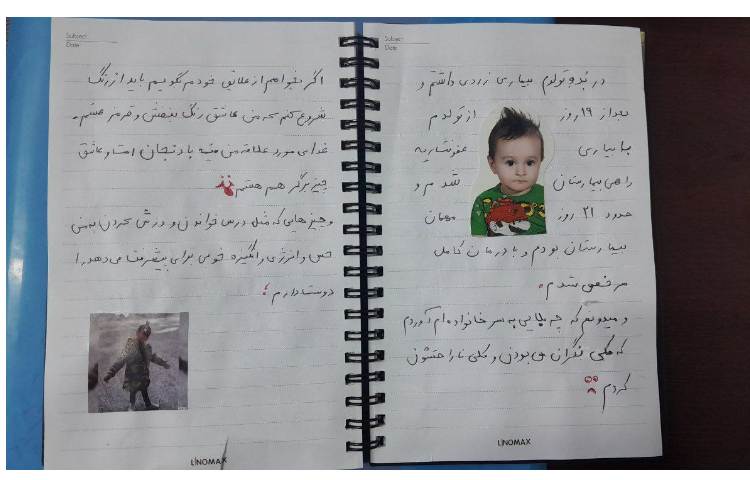 Subject
Date
در بدو تولدم بیماری زردی داشتم و
بعد از ۱۹ روز از تولدم
با بیماری
راهی بیمارستان شدم و
حدود ۲۱ روز مهمان
بیمارستان بودم و با درمان کامل
مرخص شدم.
و میدونم که چه بلایی به سر خانواده ام آوردم
که کلی نگران می بودن و کلی ناراحتشون
کردم
LINOMAX
Subject
Date
اگر بخواهم از علایق خودم بگویم باید از رنگ
شروع کنم که من عاشق رنگ بنفش و قرمز هستم.
غذای مورد علاقه من بادنجان است و عاشق
چیز برگر هم هستم
و چیز هایی که مثل درس خواندن و ورزش کردن به من
حس و انرژی و انگیزه خوبی برای پیشرفت می دهد را
دوست دارم
LINOMAX